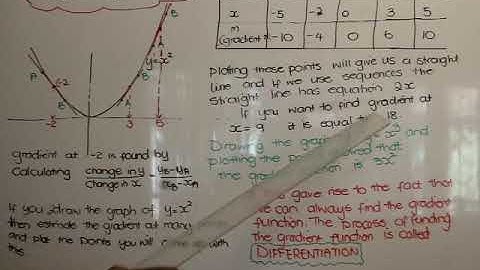 B
B
A
y=x²
A
-2
A
B
-2
3
5
gradient at -2 is found by
Calculating change in y yB-yA
change in x xB-xA
If you draw the graph of y=x²
then estimate the gradient at many
and plot the points you will with
this
x -5 -2 0 3 5
m
(gradient) -10 -4 0 6 10
plotting these points will give us a straight
line and if we use sequences the
straight line has equation 2x
If you want to find gradient at
x=9 it is equal 18.
Drawing the graph x³ and
plotting the that
the gradient is 3x²
gave rise to the fact that
can always find the gradient
function. The process of finding
the gradient function is called
DIFFERENTIATION